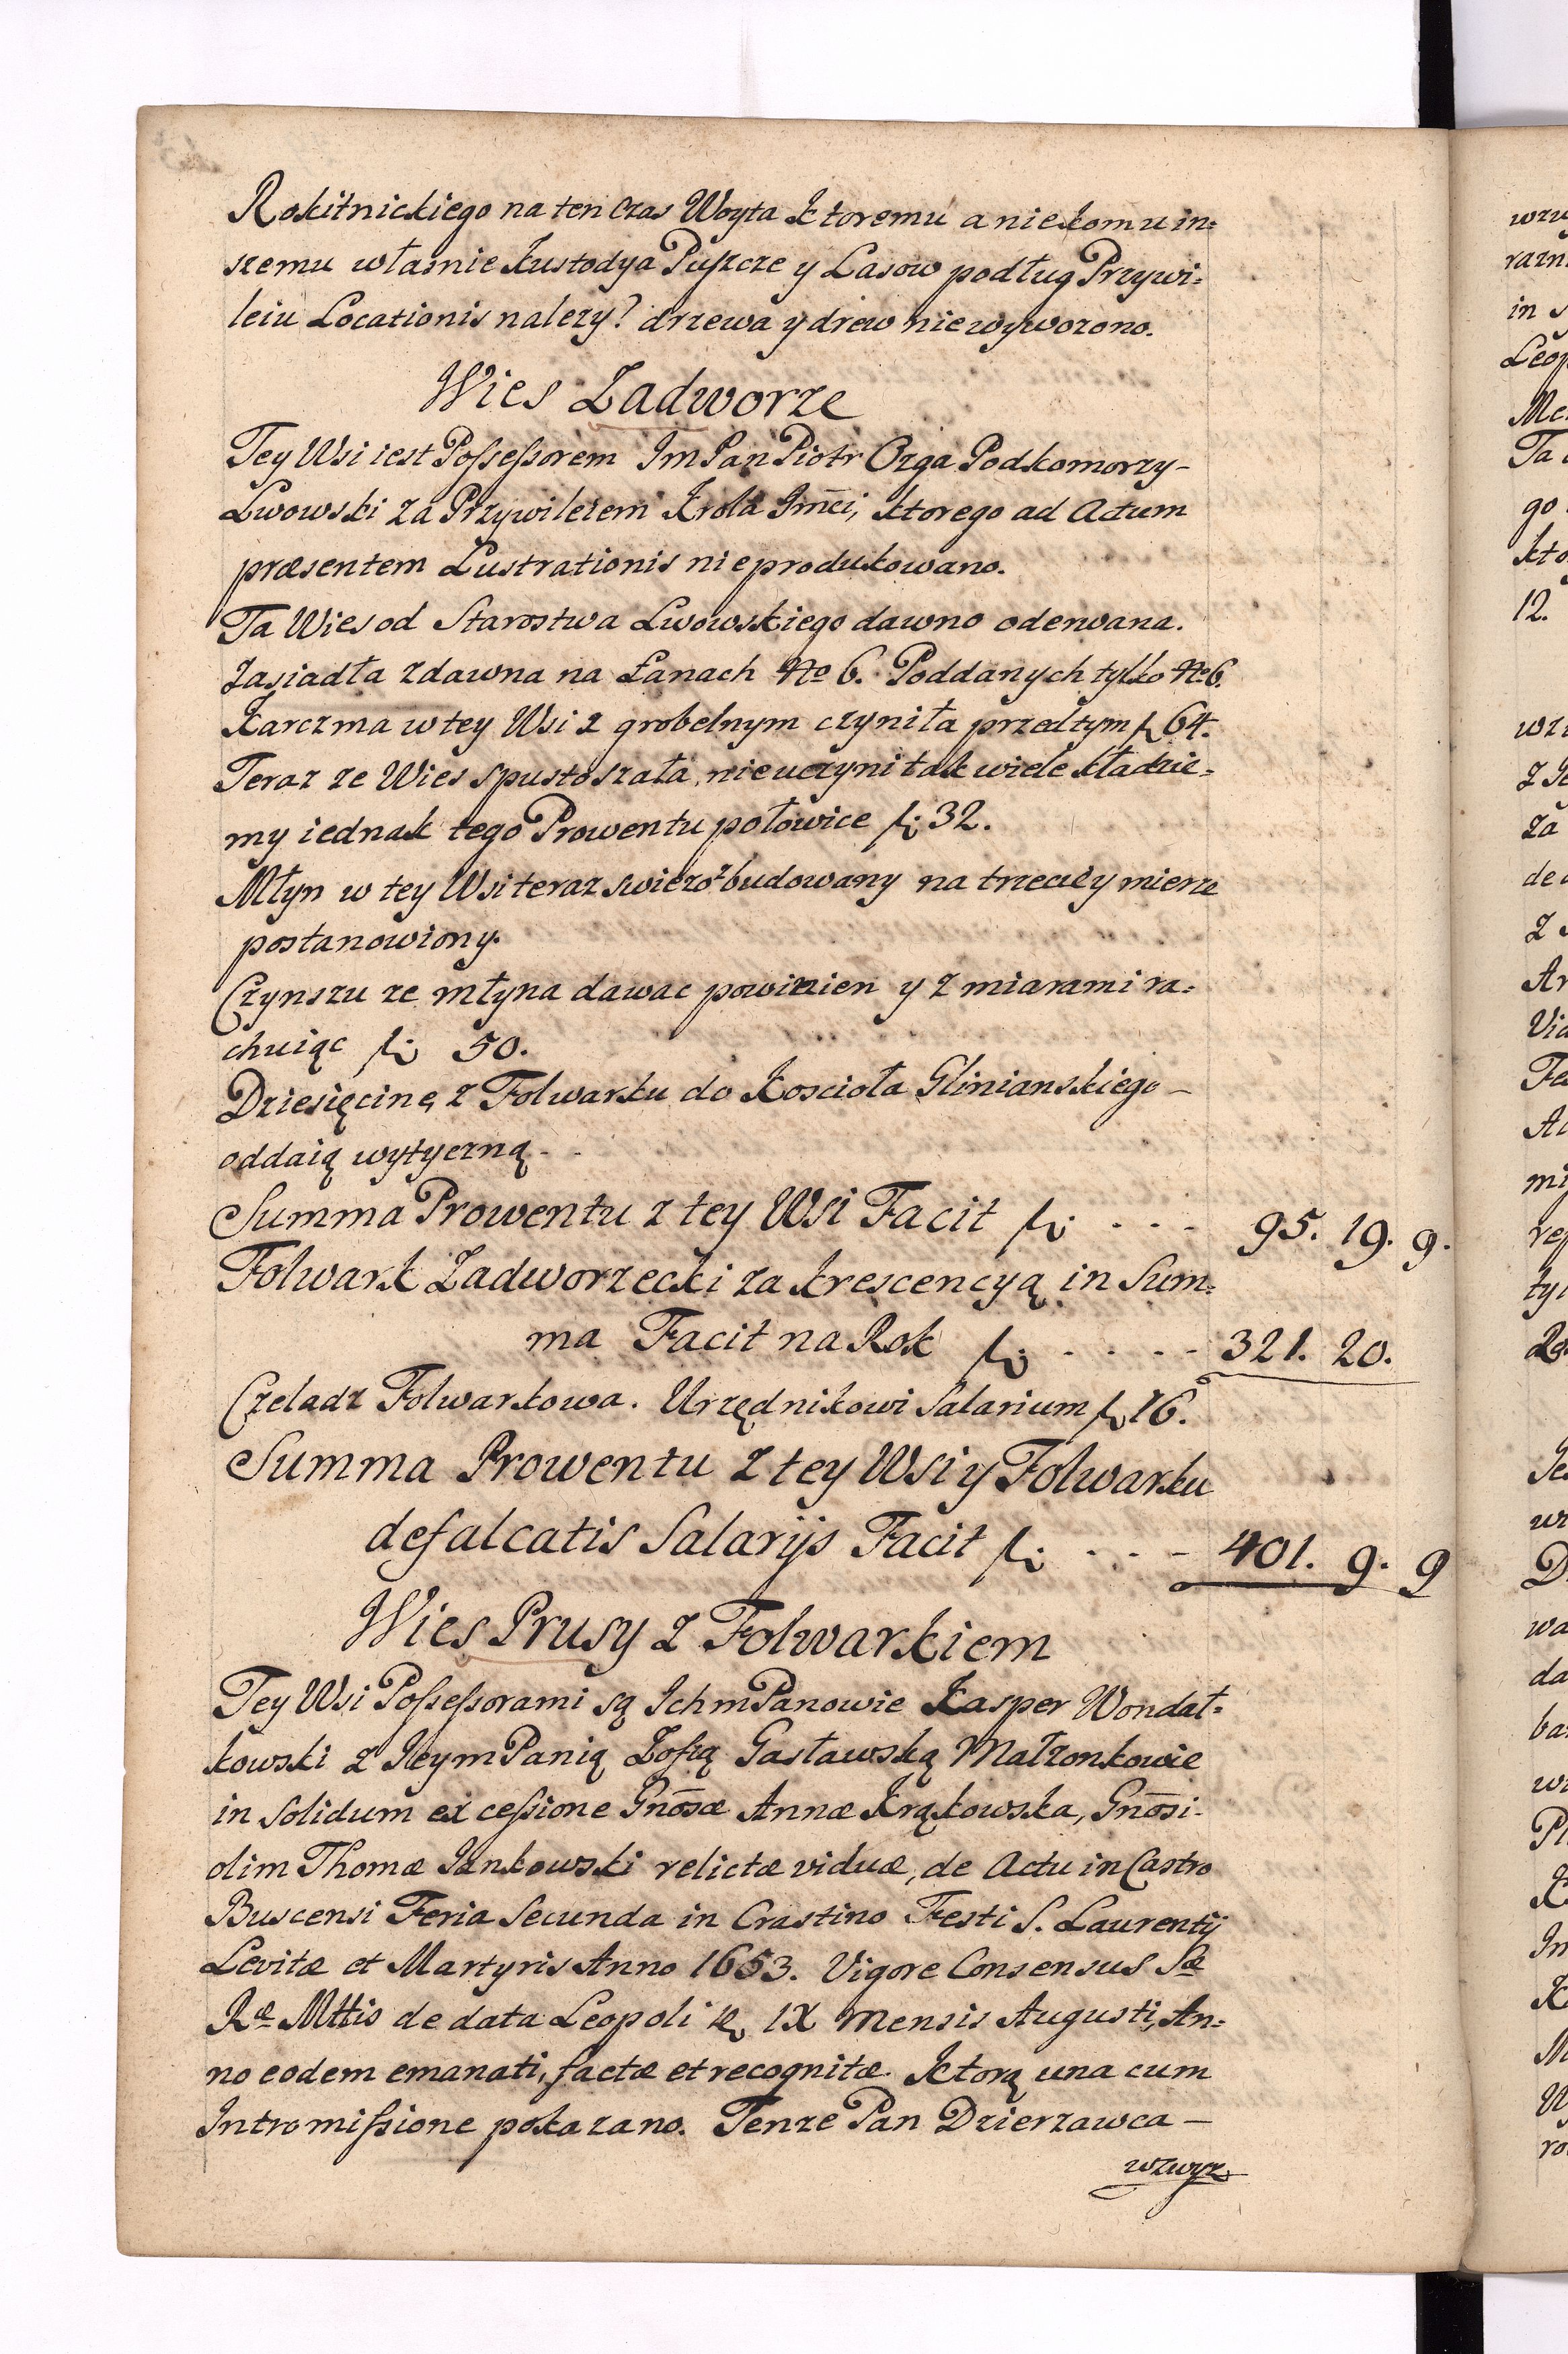 Rokitnickiego na ten czas Woyta ktoremu a niekomu in=
szemu własnie kustodya Puszcze y Lasow podług Przywi=
leiu Locationis nalezy? drzewa y drew niewywozono.
Wies Zadworze
Tey Wsi iest Possessorem Im Pan Piotr Ozga Podkomorzy-
Lwowski za Przywileiem Krola Jmci, ktorego ad Actum
præsentem Lustrationis nieprodukowano.
Ta Wies od Starostwa Lwowskiego dawno oderwana.
Zasiadła zdawna na Łanach No 6. Poddanych tylko No 6.
Karczma w tey Wsi z grobelnym czyniła przedtym fl 64.
Teraz ze Wies spustoszała, nie uczyni tak wiele kładzie=
my iednak tego Prowentu połowice fl: 32.
Młyn w tey Wsi teraz swiezo zbudowany na trzeciey mierze
postanowiony.
Czynszu ze młyna dawac powinien y z miarami ra=
chuiąc fl: 50.
Dziesięcinę z Folwarku do Koscioła Glinianskiego-
oddaią wytyczną - -
Summa Prowentu z tey Wsi Facit fl: - - - 95. 19. 9.
Folwark Zadworzecki za krescencyą in Sum=
ma Facit na Rok fl: - - - - 321. 20.
Czeladz Folwarkowa. Urzędnikowi Salarium fl 16.
Summa Prowentu z tey Wsi y Folwarku
defalcatis Salarijs Facit fl: - - - 401. 9. 9
Wies Prusy z Folwarkiem
Tey Wsi Possessorami są Ichm Panowie Kasper Wondał=
kowski z Jeym Panią Zofią Gasławską Małzonkowie
in solidum ex cessione Gnosæ Annæ Krąkowska, Gnosi-
olim Thomæ Jankowski relictæ viduæ, de Actu in Castro
Buscensi Feria Secunda in Crastino Festi S. Laurentij
Levitæ et Martyris Anno 1653. Vigore Consensus Sæ
Ræ Mttis de data Leopoli IX Mensis Augusti, An=
no eodem emanati, factæ et recognitæ. Ktorą una cum
Intromissione pokazano. Tenze Pan Dzierzawca -
wzwyz